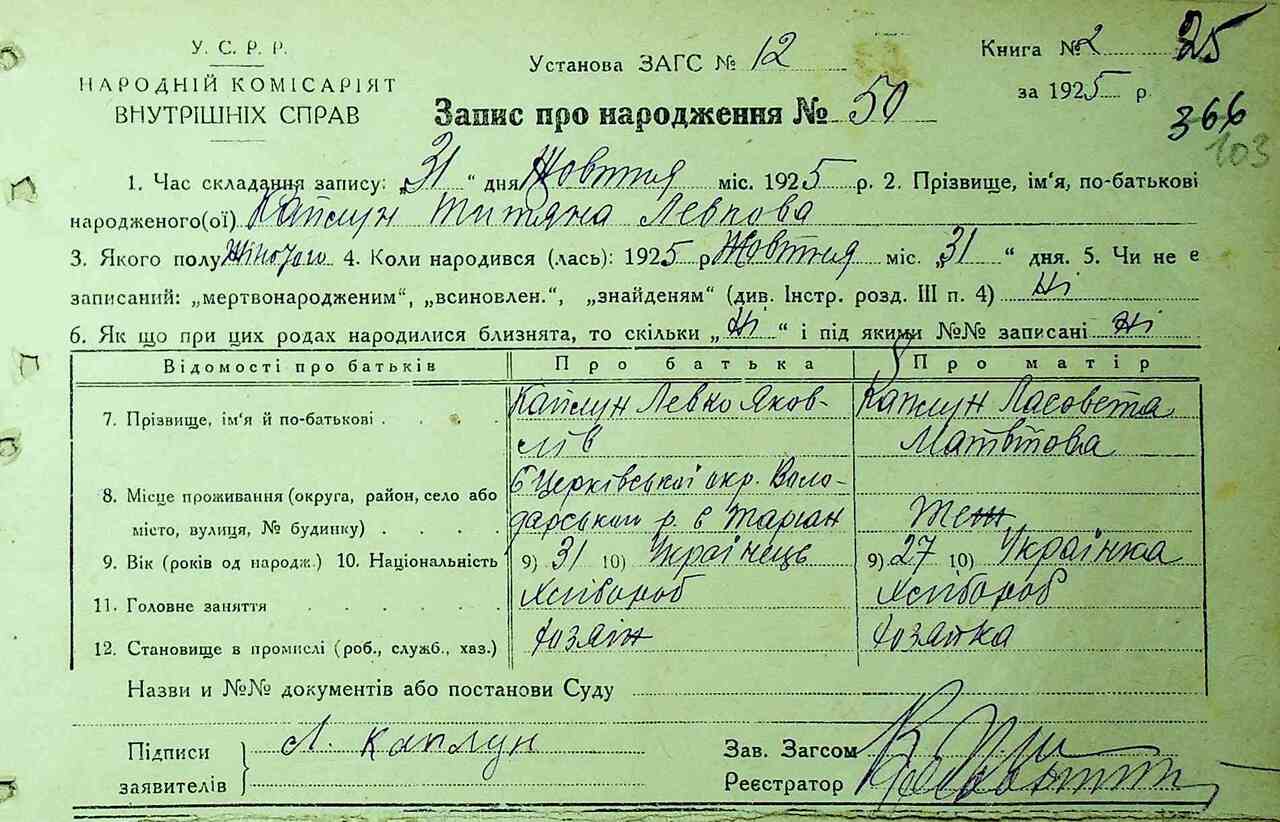 У. С. Р. Р.
НАРОДНІЙ КОМІСАРІЯТ
ВНУТРІШНІХ СПРАВ
Установа ЗАГС № 12
Книга № 2 25
за 1925 р.
Запис про народження № 50
366
103
1. Час складання запису: „31“ дня Жовтня міс. 1925 р. 2. Прізвище, ім'я, по-батькові
народженого(ої) Каплун Титяна Левкова
3. Якого полу Жіночого 4. Коли народився (лась): 1925 р Жовтня міс. „31“ дня. 5. Чи не є
записаний: „мертвонародженим“, „всиновлен.“, „знайденям“ (див. Інстр. розд. III п. 4) Ні
6. Як що при цих родах народилися близнята, то скільки „Ні“ і під якими №№ записані Ні
Відомості про батьків Про батька Про матір
7. Прізвище, ім'я й по-батькові . . . . Каплун Левко Яков- Каплун Ласовета
лів Матвіюва
8. Місце проживання (округа, район, село або Б Церківської окр. Воло-
місто, вулиця, № будинку) . . . . дарський р.
9. Вік (років од народж.) 10. Національність 9) 31 10) Українець 9) 27 10) Українка
11. Головне заняття . . . . . Хлібороб Хлібороб
12. Становище в промислі (роб., служб., хаз.) Хозяін Хозяйка
Назви и №№ документів або постанови Суду
Підписи Л. Каплун Зав. Загсом
заявителів Реєстратор